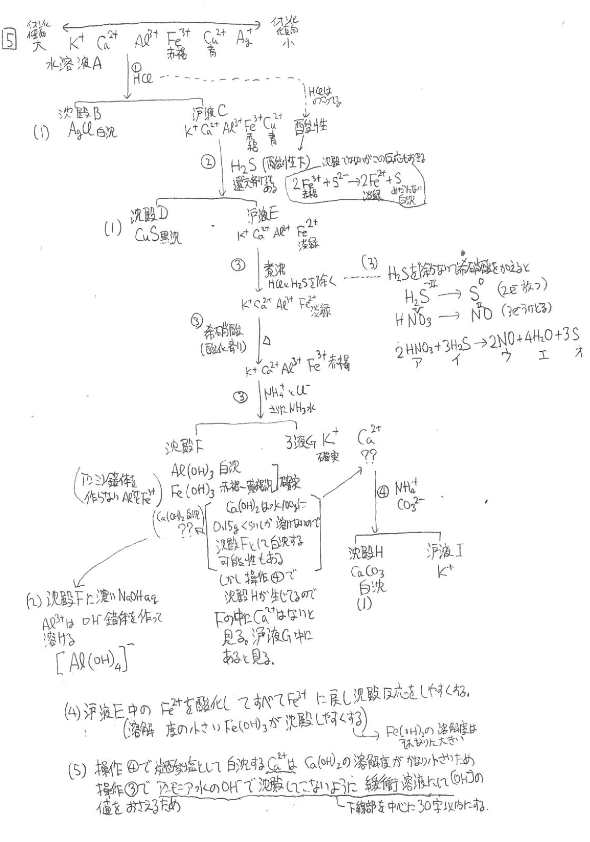 5
イオン化傾向 大
イオン化傾向 小
K⁺ Ca²⁺ Al³⁺ Fe³⁺ Cu²⁺ Ag⁺
赤褐 青
水溶液A
① HCl
HClは
沈殿B
ろ液C
(1) AgCl 白沈
K⁺ Ca²⁺ Al³⁺ Fe³⁺ Cu²⁺
赤褐 青
酸性
② H₂S (酸性下)
還元剤でもある
沈殿ではないがこの反応もおきる
2Fe³⁺+S²⁻→2Fe²⁺+S
赤褐 淡緑 めだたない白沈
沈殿D
ろ液E
(1) CuS黒沈
K⁺ Ca²⁺ Al³⁺ Fe²⁺
淡緑
③ 煮沸
HClとH₂Sを除く
K⁺ Ca²⁺ Al³⁺ Fe²⁺
淡緑
(3) H₂Sを除かないで希硝酸を加えると
H₂S → S (2e⁻放つ)
HNO₃ → NO (3e⁻うけとる)
2HNO₃+3H₂S→2NO+4H₂O+3S
ア イ ウ エ オ
③ 希硝酸
(酸化剤)
K⁺ Ca²⁺ Al³⁺ Fe³⁺ 赤褐
③ NH₄⁺とCl⁻
さらにNH₃水
沈殿F
ろ液G K⁺ Ca²⁺
確実 ??
Al(OH)₃ 白沈
Fe(OH)₃ 赤褐
確実
(アンミン錯体を
作らないAl³⁺とFe³⁺)
(Ca(OH)₂ 白沈
??
Ca(OH)₂は水100gに
0.15gくらいしか溶けないので
沈殿Fとして白沈する
可能性もある
しかし操作④で
沈殿Hが生じてるので
Fの中にCa²⁺はないと
見る。ろ液G中に
あると見る。
④ NH₄⁺
CO₃²⁻
沈殿H
ろ液I
CaCO₃
K⁺
白沈
(1)
(2) 沈殿Fに濃いNaOHaq
Al³⁺はOH⁻錯体を作って
溶ける
[Al(OH)₄]⁻
(4) ろ液E中のFe²⁺を酸化してすべてFe³⁺に戻し沈殿反応をしやすくする。
(溶解度の小さいFe(OH)₃が沈殿しやすくする)
Fe(OH)₂の溶解度は
大きい
(5) 操作④で炭酸塩として白沈するCa²⁺はCa(OH)₂の溶解度がかなり小さいため
操作③でアンモニア水のOH⁻で沈殿してこないように緩衝溶液にして[OH⁻]の
値をおさえるため
下線部を中心に30字以内にする。